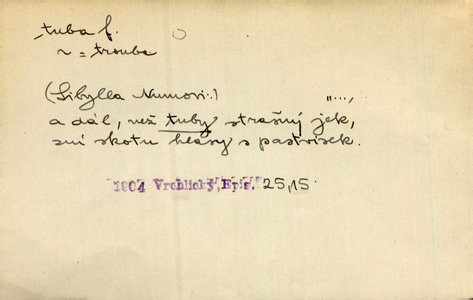 tuba f.
~ = trouba
(Sibylla Numovi..) "...,
a dál, než tuby strašný jek,
zní skotu hlasy s pastvisek.
1904 Vrchlický, Epis. 25,15